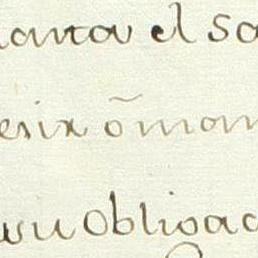 anta el sa
esix õman
su obligac